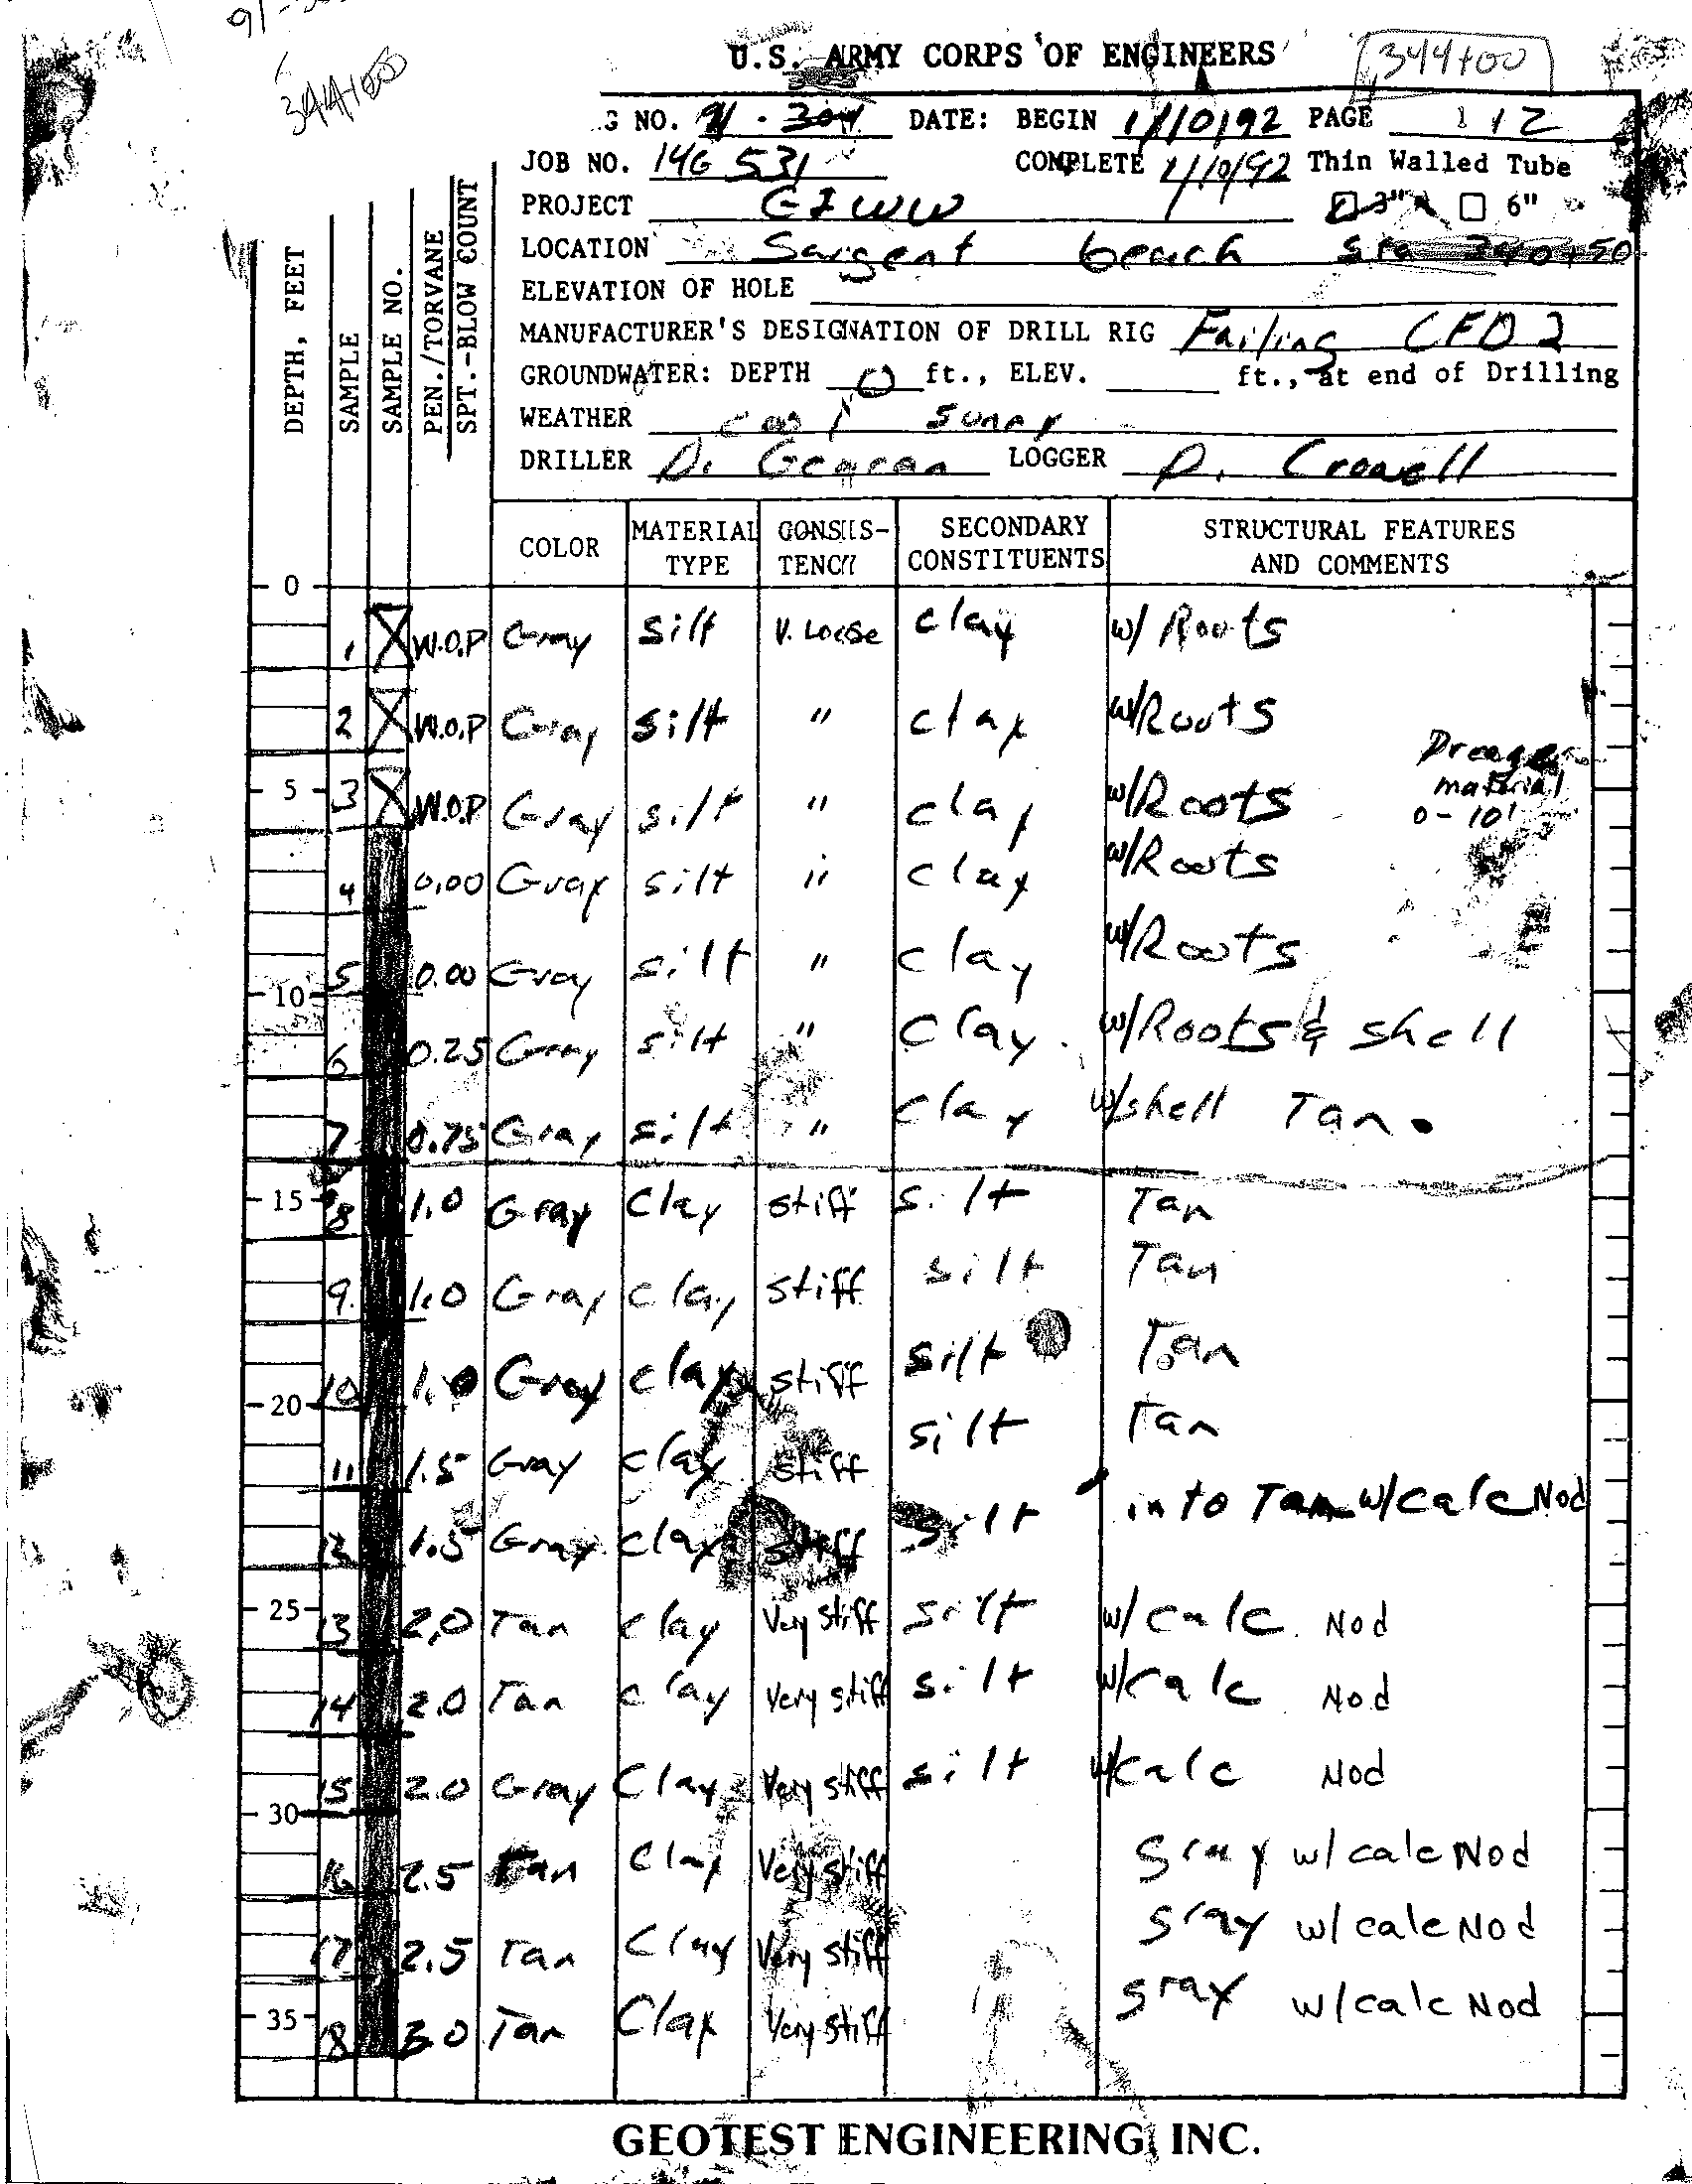 344+00
U.S. ARMY CORPS OF ENGINEERS
344+00
G NO. 91 - 304 DATE: BEGIN 1/10/92 PAGE 1/2
JOB NO. 14G 531 COMPLETE 1/10/92 Thin Walled Tube
PROJECT GIWW 3" 6"
LOCATION Sargent beach Sta 340+50
ELEVATION OF HOLE
MANUFACTURER'S DESIGNATION OF DRILL RIG Failing CFD 2
GROUNDWATER: DEPTH 0 ft., ELEV. ft., at end of Drilling
WEATHER cool Sunny
DRILLER D. LOGGER D. Crowell
DEPTH, FEET
SAMPLE
SAMPLE NO.
PEN./TORVANE
SPT.-BLOW COUNT
COLOR MATERIAL TYPE CONSIS-TENCY SECONDARY CONSTITUENTS STRUCTURAL FEATURES AND COMMENTS
0
1 W.O.P Gray Silt V. Loose clay w/ Roots
2 W.O.P Gray silt " clay w/Roots
Dredge material 0-10'
5 3 W.O.P Gray silt " clay w/Roots
4 0.00 Gray silt " clay w/Roots
10 5 0.00 Gray silt " clay w/Roots
6 0.25 Gray silt " Clay w/Roots & shell
7 0.75 Gray silt " clay w/shell Tan
15 8 1.0 Gray Clay stiff silt Tan
9. 1.0 Gray clay stiff silt Tan
20 10 1.0 Gray clay stiff silt Tan
11 1.5 Gray clay stiff silt Tan
12 1.5 Gray clay stiff silt into Tan w/calc Nod
25 13 2.0 Tan clay Very stiff silt w/ calc. Nod
14 2.0 Tan clay Very stiff silt w/calc Nod
30 15 2.0 Gray Clay Very stiff silt w/calc Nod
16 2.5 Tan Clay Very stiff gray w/ calc Nod
17 2.5 Tan Clay Very stiff gray w/ calc Nod
35 18 3.0 Tan Clay Very stiff gray w/ calc Nod
GEOTEST ENGINEERING, INC.